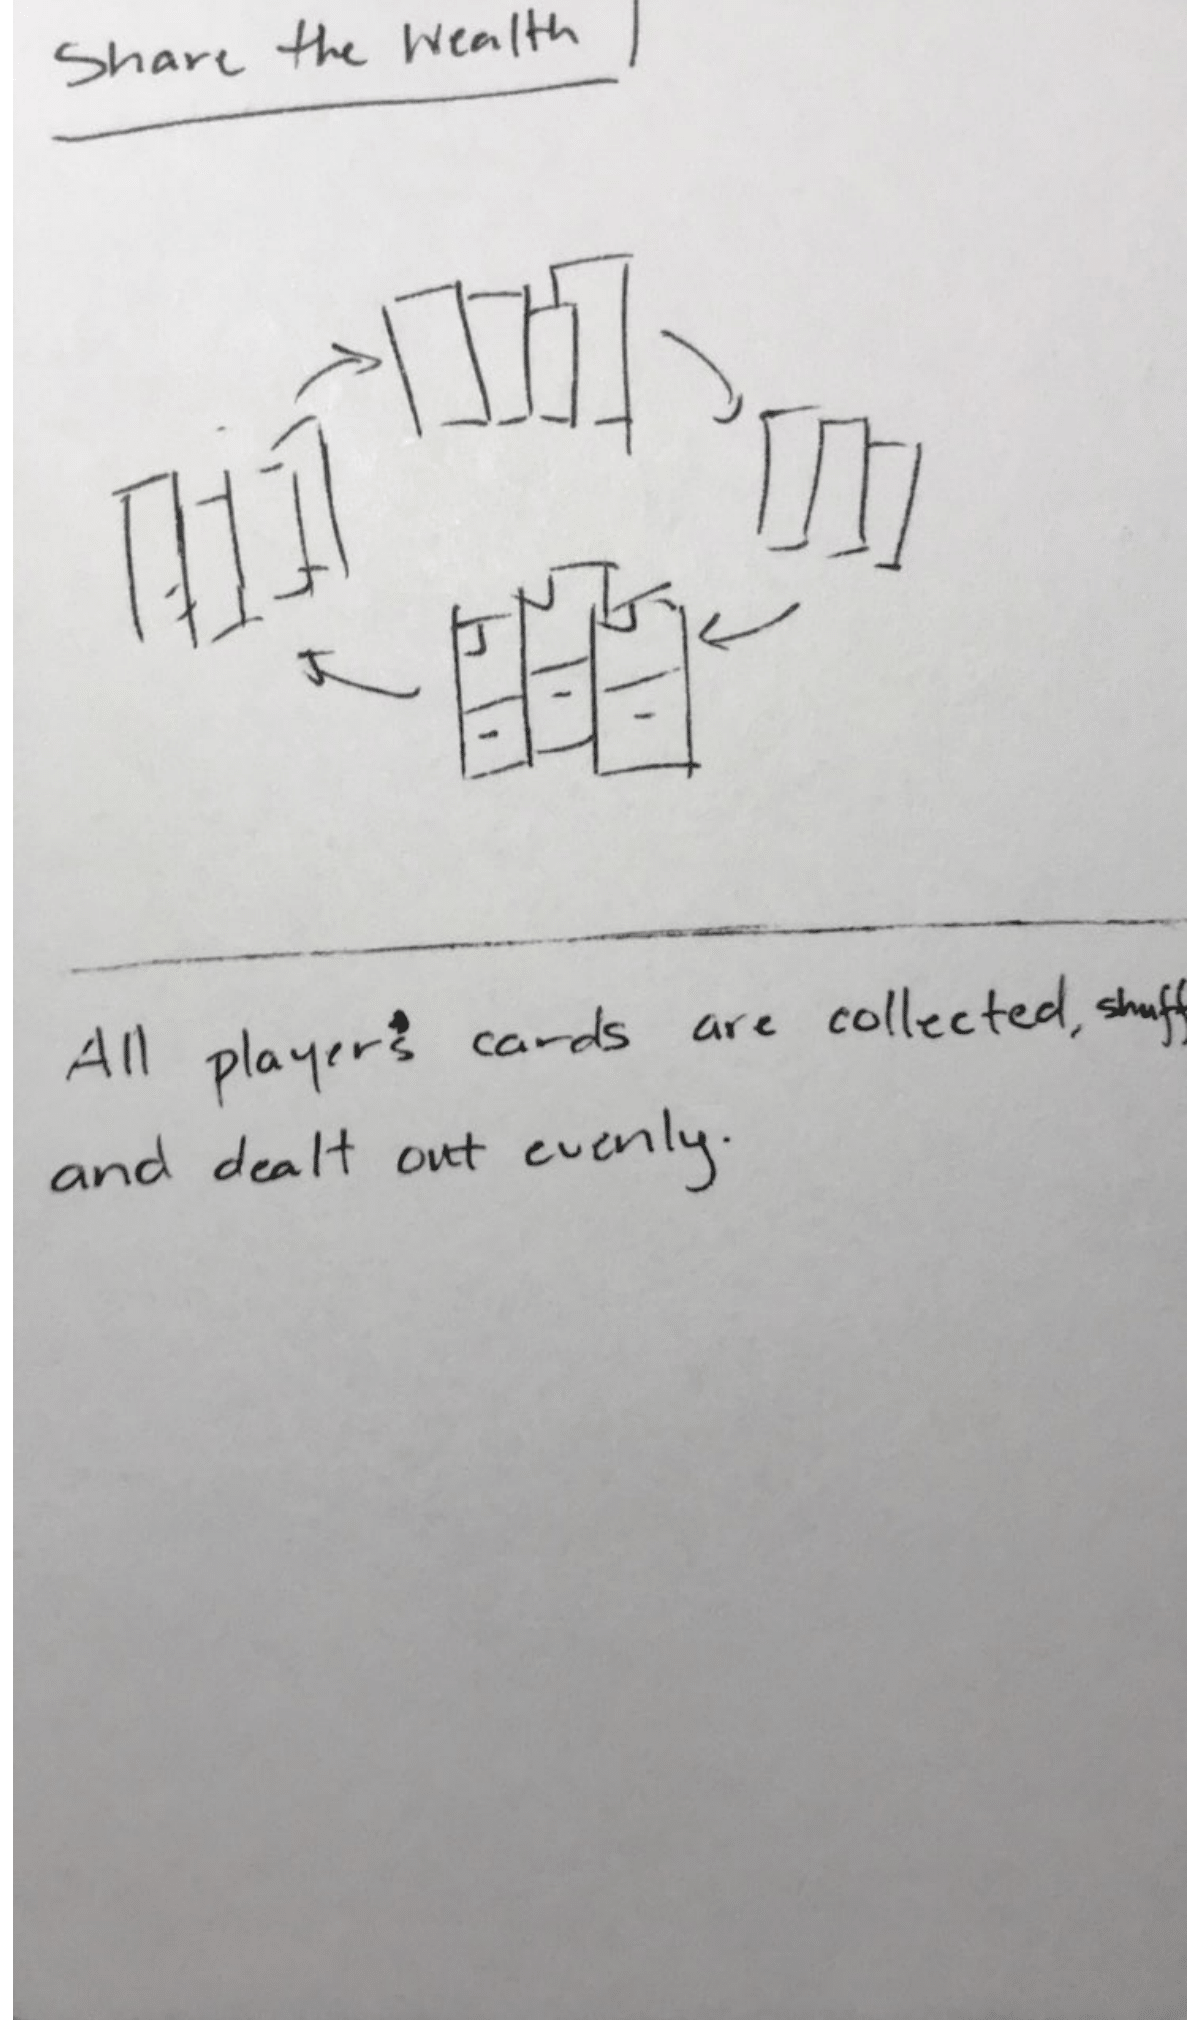 Share the Wealth
All player's cards are collected, shuff
and dealt out evenly.